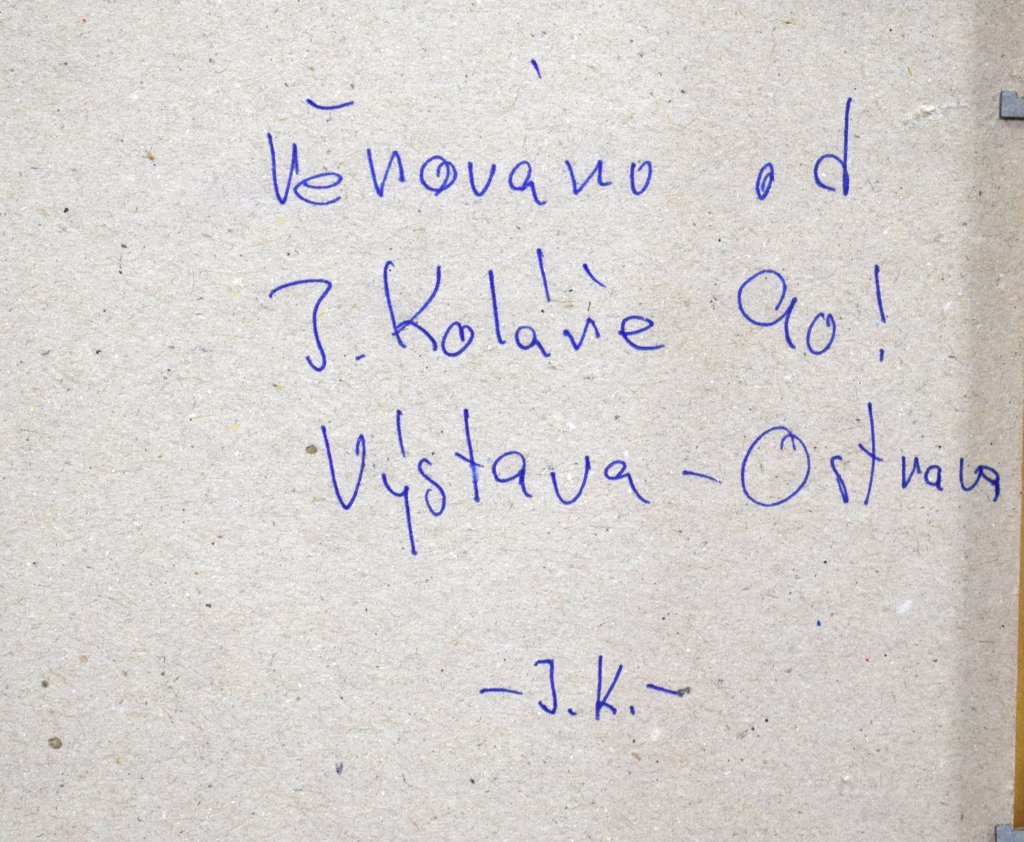 Věnováno od
J. Koláře 90!
Výstava – Ostrava
– J.K. –